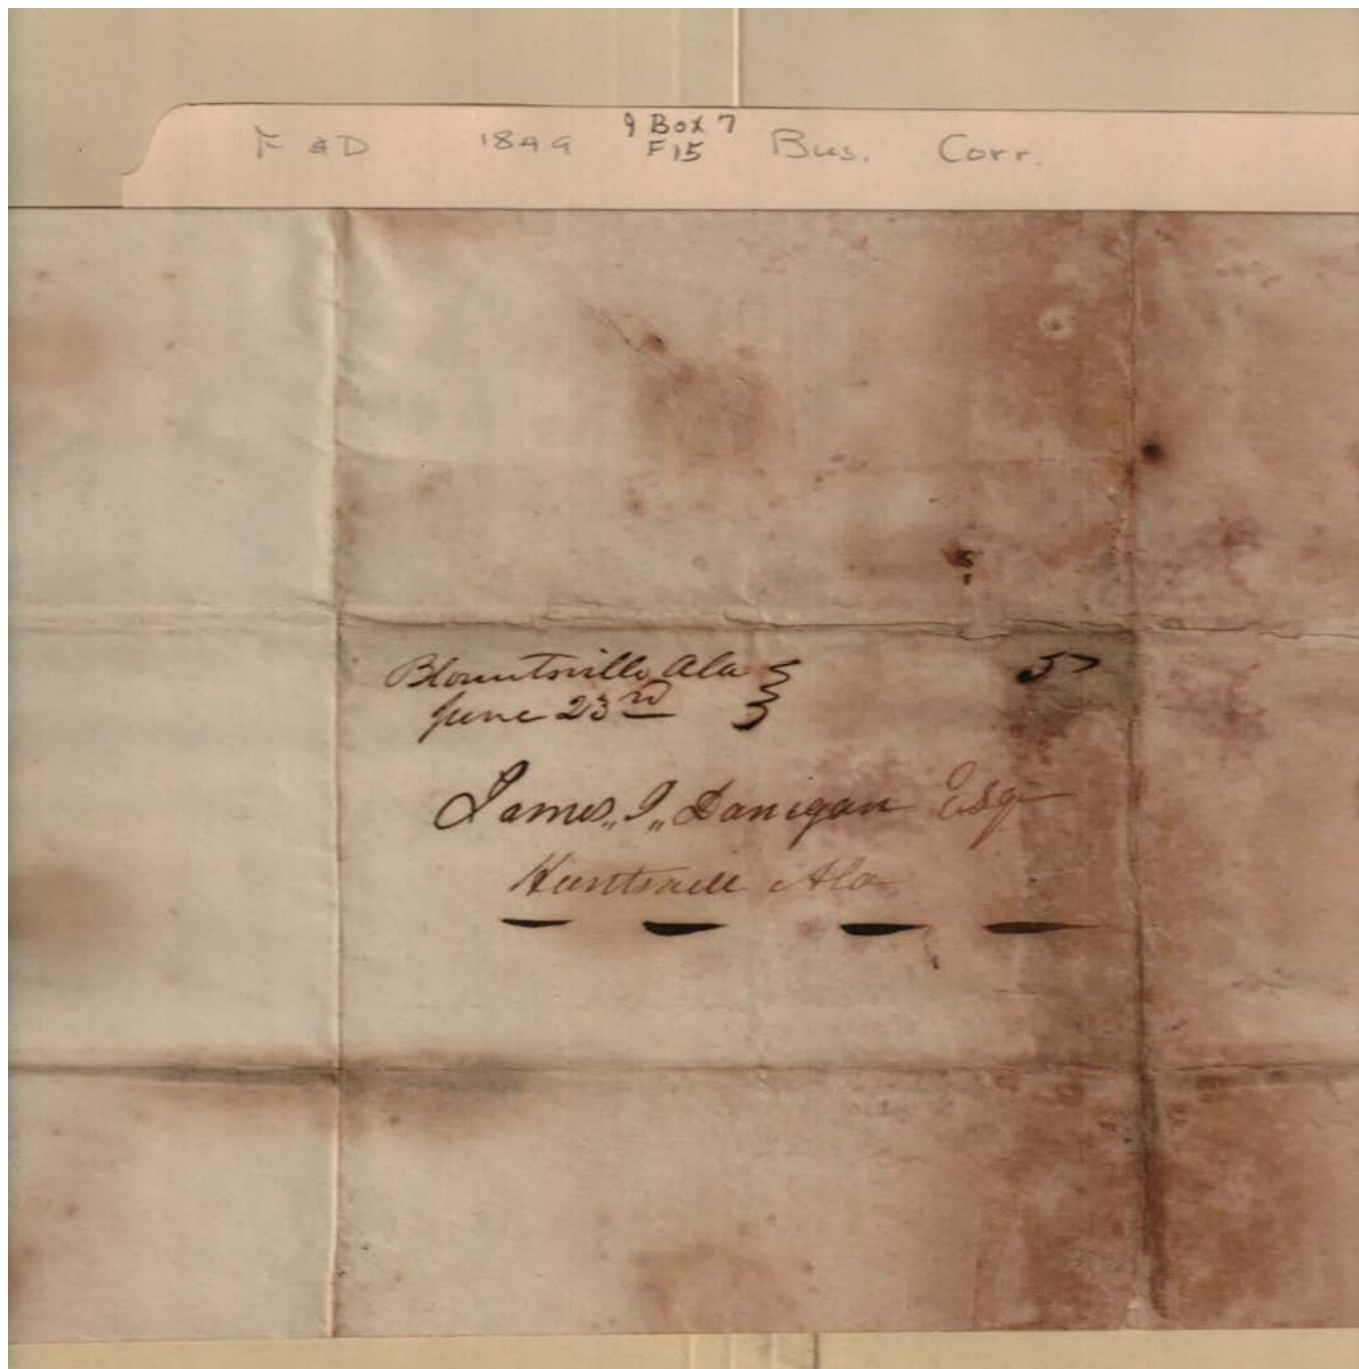 F & D 1849 9 Box 7 Bus. Corr.
F 15
Blountsville Ala 5
June 23rd
James,, J,, Donegan Esqr
Huntsville Ala